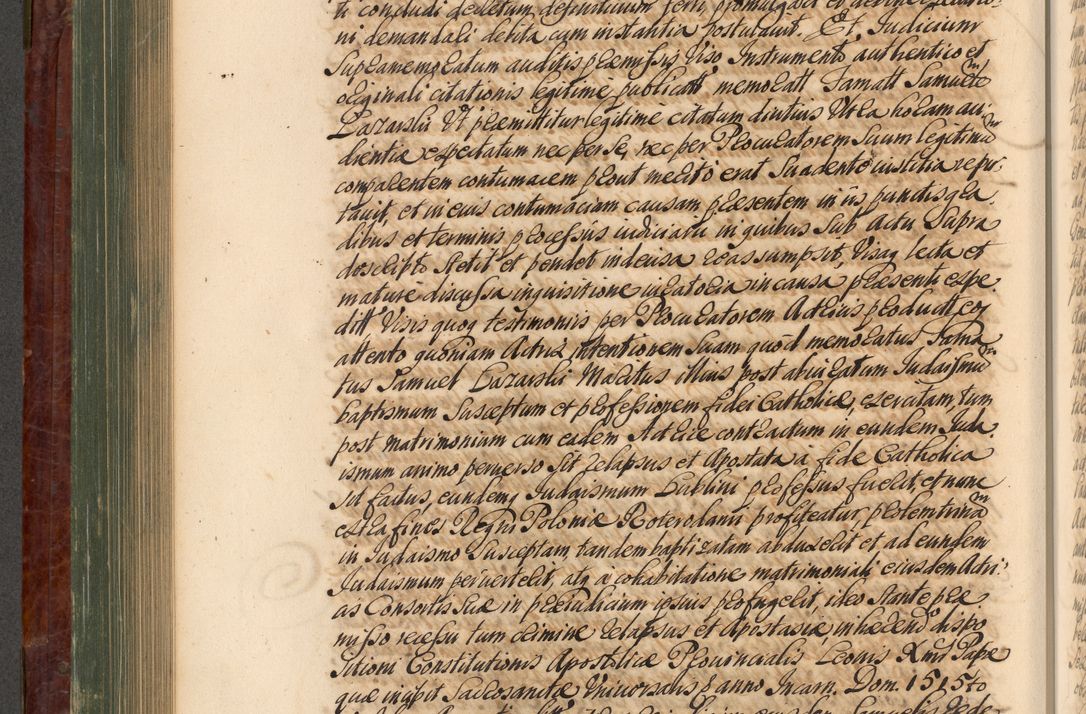 ti concludi decretum definitivum ferri promulgari et
ni demandari debita cum instantia postulavit. Et Judicium
Supramemoratum auditis præmissis Viso Instrumento authentico et
originali citationis legitimè publicatt memoratt Famatt Samuele
Lazarski Ut præmittitur legitimè citatum diutius Ultra horam au:
dientiæ expectatum nec per se, nec per Procuratorem Suum legitimũ
comparentem contumacem prout meritò erat Suadente iustitia repu:
tavit, et in eius contumaciam causam præsentem in iis punctis gra:
dibus et terminis processus iudiciarii in quibus Sub Actu Supra
descripto Stetit et pendet indecisa reassumpsit, Visaq lecta et
maturè discussa inquisitione iuratoria in causa præsenti expe
ditt, Visis quoq testimoniis per Procuratorem Actricis productt, eoq
attento quoniam Actrix intentionem Suam quod memoratus Fama
tus Samuel Lazarski Maritus illius post abiuratum Judaismũ
baptismum Susceptum et professionem fidei Catholicæ, exercitam, tum
post matrimonium cum eadem Actrice contractum in eundem Juda
ismum animo perverso Sit relapsus et Apostata à fide Catholica
sit factus, eundemq Judaismum Lublini professus fuerit, et nunc
extra fines Regni Poloniæ Roterodami profiteatur prolem trinã
in Judaismo Susceptam, tandem baptizatam abduxerit et ad eundem
Judaismum perverterit, atq à cohabitatione matrimoniali eiusdem Actri:
cis Consortis Suæ in præiudicium ipsius profugerit, ideo Stante præ
misso recessu tum crimine relapsus et Apostasiæ inhærendo dispo
sitioni Constitutionis Apostolicæ Provincialis Leonis Xmi Papæ
quæ incipit Sacrosanctæ Universalis p anno Incarn. Dom. 1515to